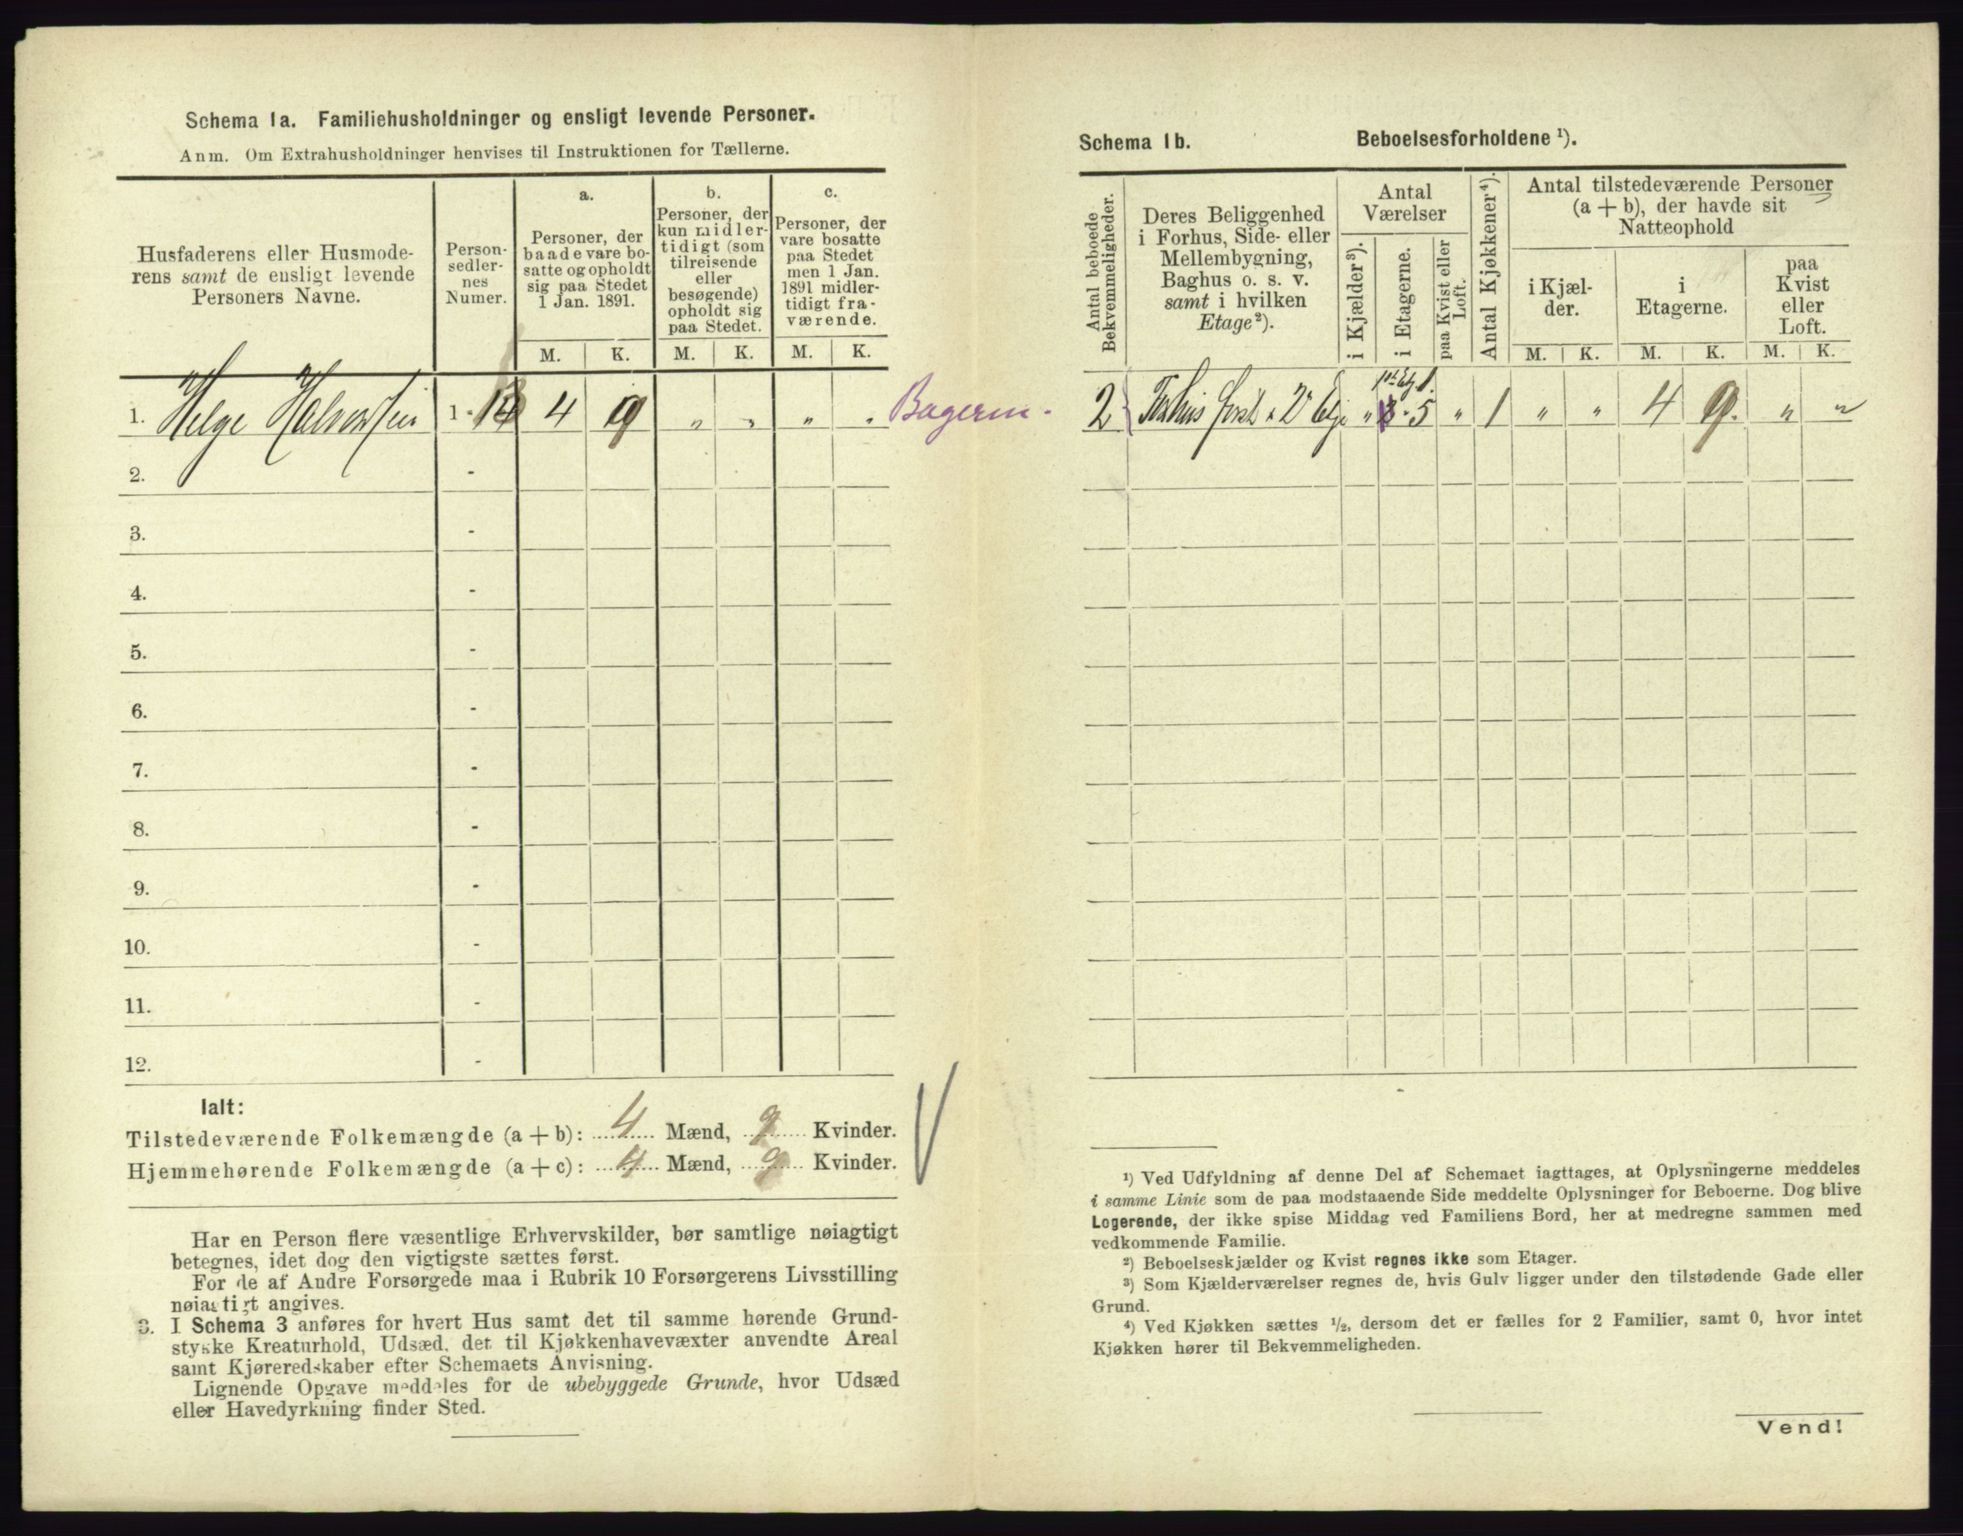 Schema 1a. Familiehusholdninger og ensligt levende Personer.
Anm. Om Extrahusholdninger henvises til Instruktionen for Tællerne.
Husfaderens eller Husmode-
rens samt de ensligt levende
Personers Navne.
Person-
sedler-
nes
Numer.
a.
Personer, der
baade vare bo-
satte og opholdt
sig paa Stedet
1 Jan. 1891.
b.
Personer, der
kun midler-
tidigt (som
tilreisende
eller
besøgende)
opholdt sig
paa Stedet.
c.
Personer, der
vare bosatte
paa Stedet
men 1 Jan.
1891 midler-
tidigt fra-
værende.
M. K. M. K. M. K.
1. Helge Halvorsen 1 - 13 4 9 „ „ „ „ Bagerm.
2. -
3. -
4. -
5. -
6. -
7. -
8. -
9. -
10. -
11. -
12. -
Ialt:
Tilstedeværende Folkemængde (a + b): 4 Mænd, 9 Kvinder.
Hjemmehørende Folkemængde (a + c): 4 Mænd, 9 Kvinder.
Har en Person flere væsentlige Erhvervskilder, bør samtlige nøiagtigt
betegnes, idet dog den vigtigste sættes først.
For de af Andre Forsørgede maa i Rubrik 10 Forsørgerens Livsstilling
nøiagtigt angives.
3. I Schema 3 anføres for hvert Hus samt det til samme hørende Grund-
stykke Kreaturhold, Udsæd, det til Kjøkkenhavevæxter anvendte Areal
samt Kjøreredskaber efter Schemaets Anvisning.
Lignende Opgave meddeles for de ubebyggede Grunde, hvor Udsæd
eller Havedyrkning finder Sted.
Schema 1b. Beboelsesforholdene ¹).
Antal beboede
Bekvemmeligheder.
Deres Beliggenhed
i Forhus, Side- eller
Mellembygning,
Baghus o. s. v.
samt i hvilken
Etage²).
Antal
Værelser
i Kjælder³).
i Etagerne.
paa Kvist eller
Loft.
Antal Kjøkkener⁴).
Antal tilstedeværende Personer
(a + b), der havde sit
Natteophold
i Kjæl-
der.
i
Etagerne.
paa
Kvist
eller
Loft.
M. K. M. K. M. K.
2 Forhus 2 „ 5 „ 1 „ „ 4 9. „ „
¹) Ved Udfyldning af denne Del af Schemaet iagttages, at Oplysningerne meddeles
i samme Linie som de paa modstaaende Side meddelte Oplysninger for Beboerne. Dog blive
Logerende, der ikke spise Middag ved Familiens Bord, her at medregne sammen med
vedkommende Familie.
²) Beboelseskjælder og Kvist regnes ikke som Etager.
³) Som Kjælderværelser regnes de, hvis Gulv ligger under den tilstødende Gade eller
Grund.
⁴) Ved Kjøkken sættes ½, dersom det er fælles for 2 Familier, samt 0, hvor intet
Kjøkken hører til Bekvemmeligheden.
Vend!